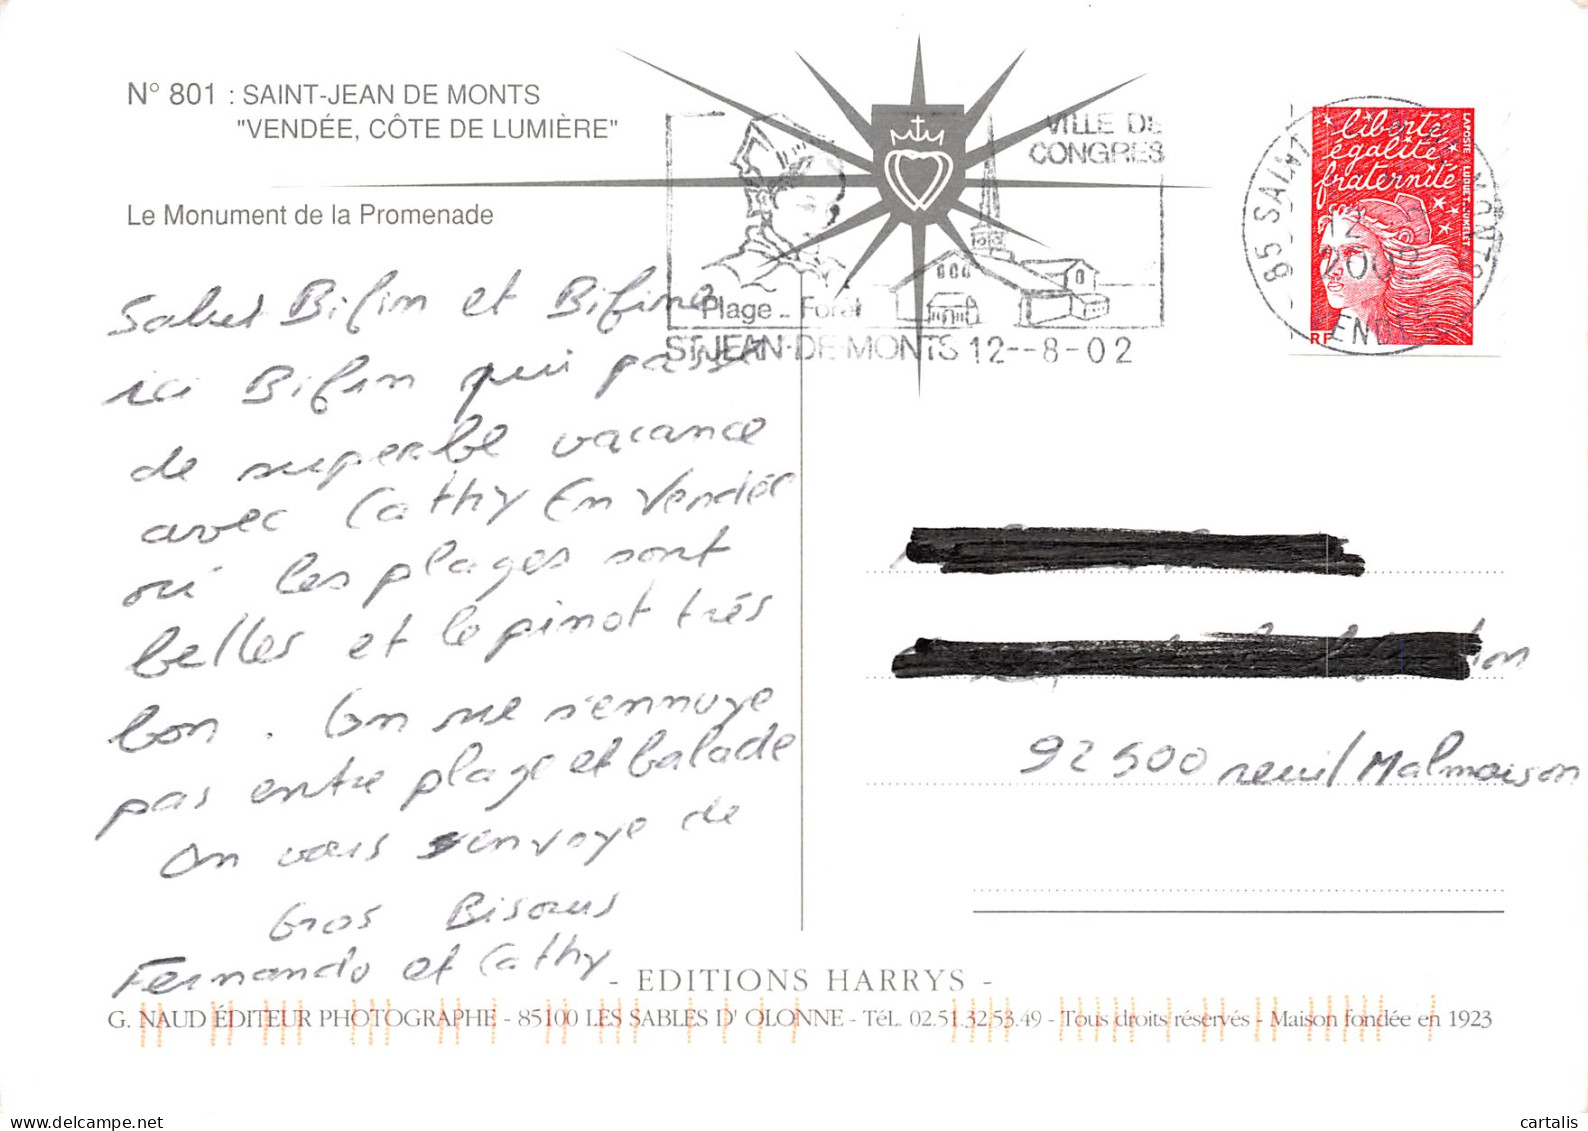 N° 801 : SAINT-JEAN DE MONTS
"VENDÉE, CÔTE DE LUMIÈRE"
Le Monument de la Promenade
VILLE DE
CONGRES
Plage - Forêt
ST JEAN-DE-MONTS 12--8-02
85 SAINT MONTS
12
200
VENDEE
liberté
égalité
fraternité
LAPOSTE LUQUET-JUMELET
RF
Salut Bifin et Bifine
ici Bifin qui passe
de superbe vacance
avec Cathy En Vendée
où les plages sont
belles et le pinot très
bon. On ne s'ennuye
pas entre plage et balade
On vous envoye de
Gros Bisous
Fernando et Cathy
92500 reuil Malmaison
- EDITIONS HARRYS -
G. NAUD ÉDITEUR PHOTOGRAPHE - 85100 LES SABLES D' OLONNE - TéL. 02.51.32.53.49 - Tous droits réservés - Maison fondée en 1923
www.delcampe.net
cartalis